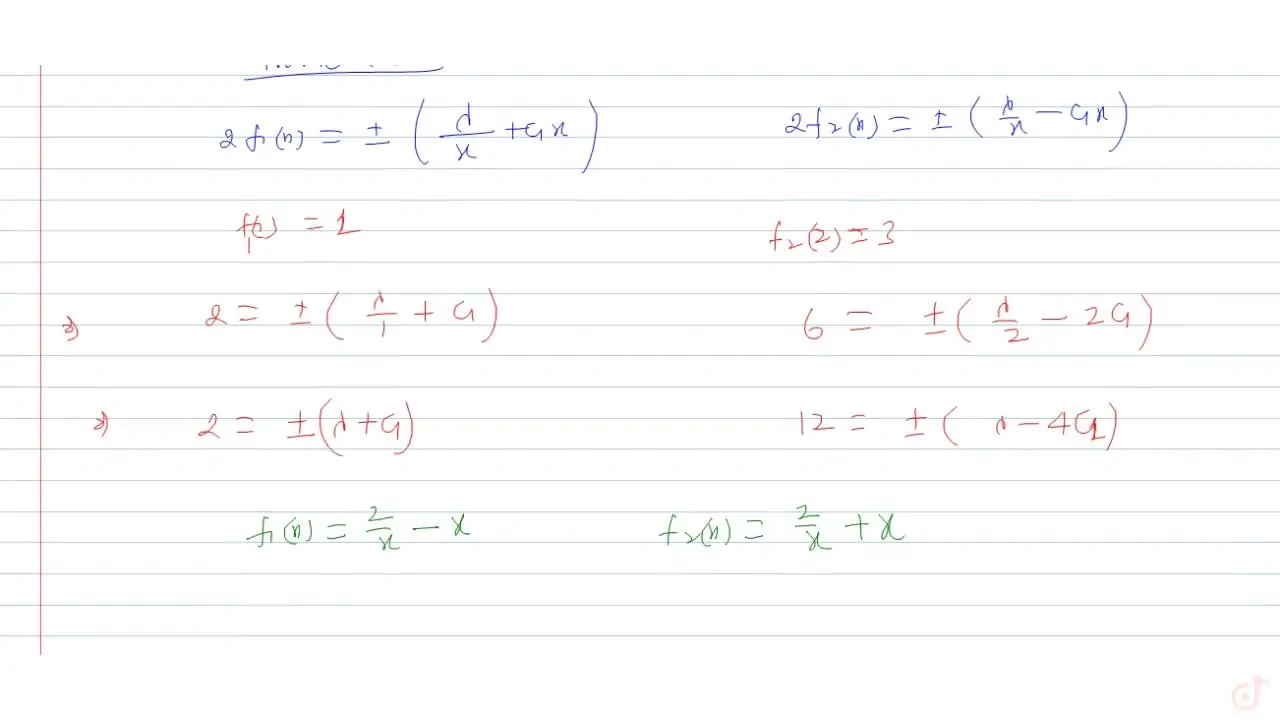 2f₁(x) = ± (λ/x + C₁x)    2f₂(x) = ± (λ/x − C₁x)
f₁(1) = 1    f₂(2) = 3
⇒ 2 = ± (λ/1 + C₁)    6 = ± (λ/2 − 2C₁)
⇒ 2 = ± (λ + C₁)    12 = ± (λ − 4C₁)
f₁(x) = 2/x − x    f₂(x) = 2/x + x